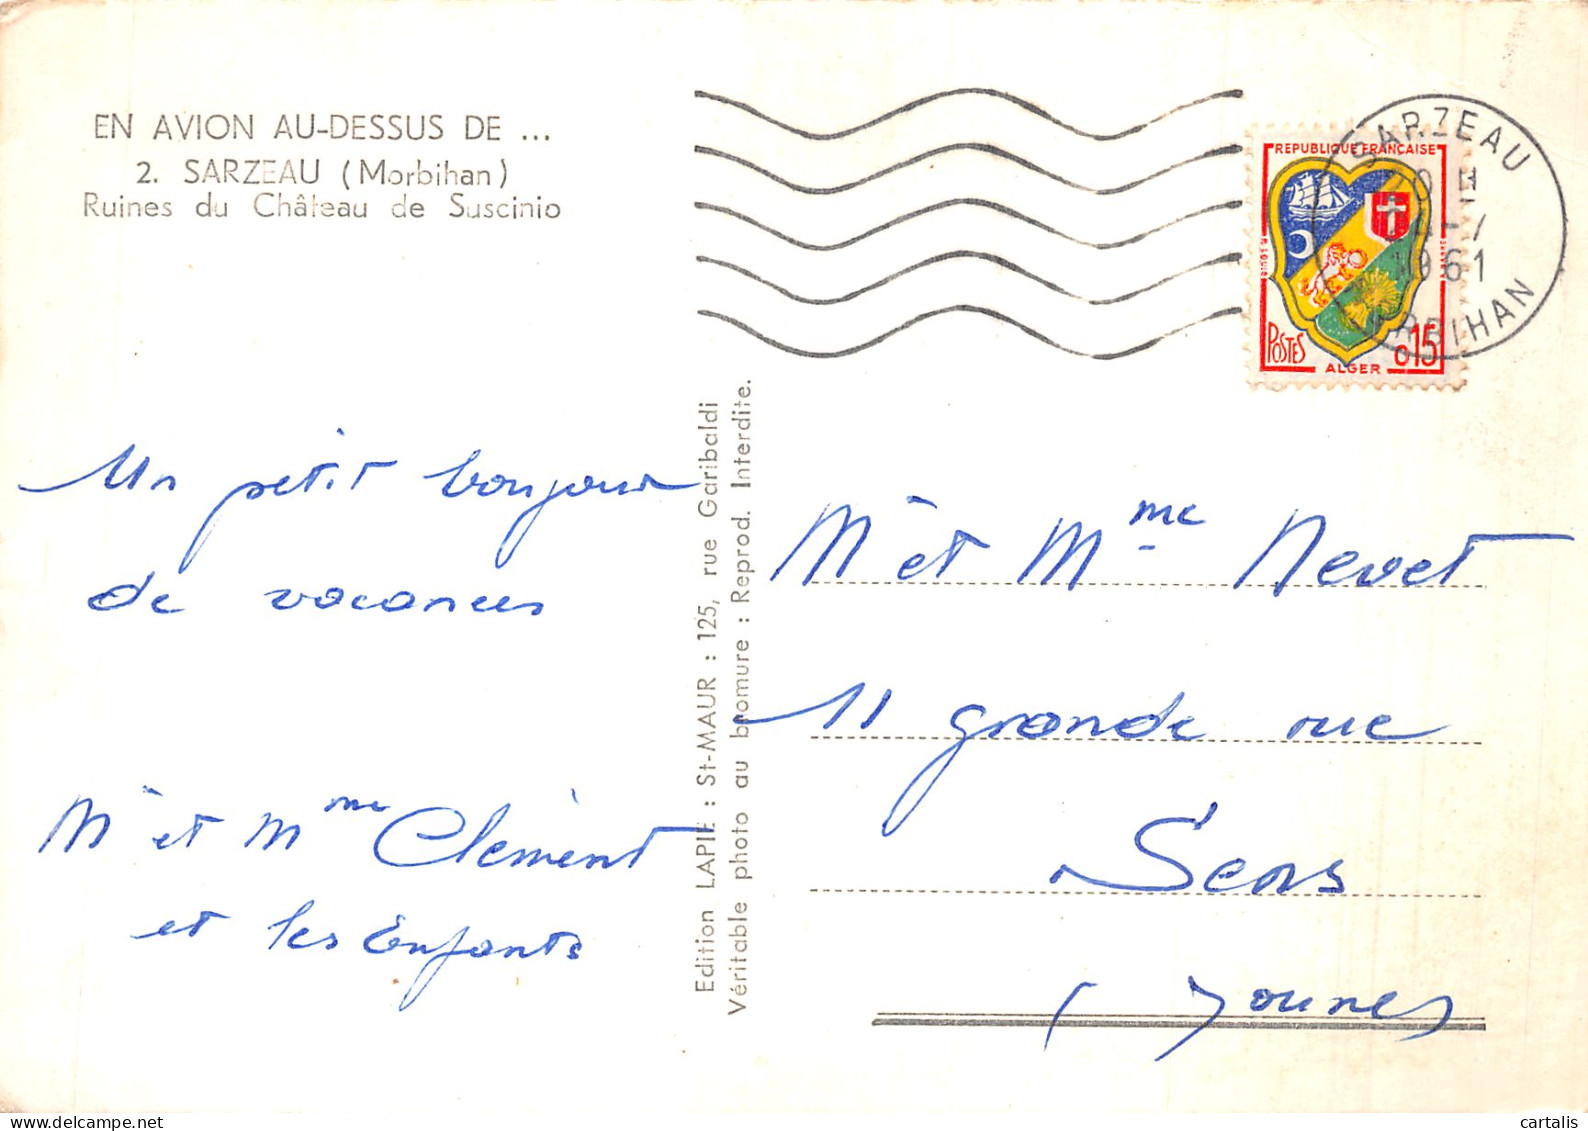 EN AVION AU-DESSUS DE ...
2. SARZEAU (Morbihan)
Ruines du Château de Suscinio
Un petit bonjour
de vacances
Mr et Mme Clément
et les Enfants
Edition LAPIE : St-MAUR : 125, rue Garibaldi
Véritable photo au bromure : Reprod. Interdite.
SARZEAU
1961
MORBIHAN
REPUBLIQUE FRANÇAISE
POSTES
0,15
ALGER
Mr et Mme Nevet
11 grande rue
Sens
(Yonne)
cartalis